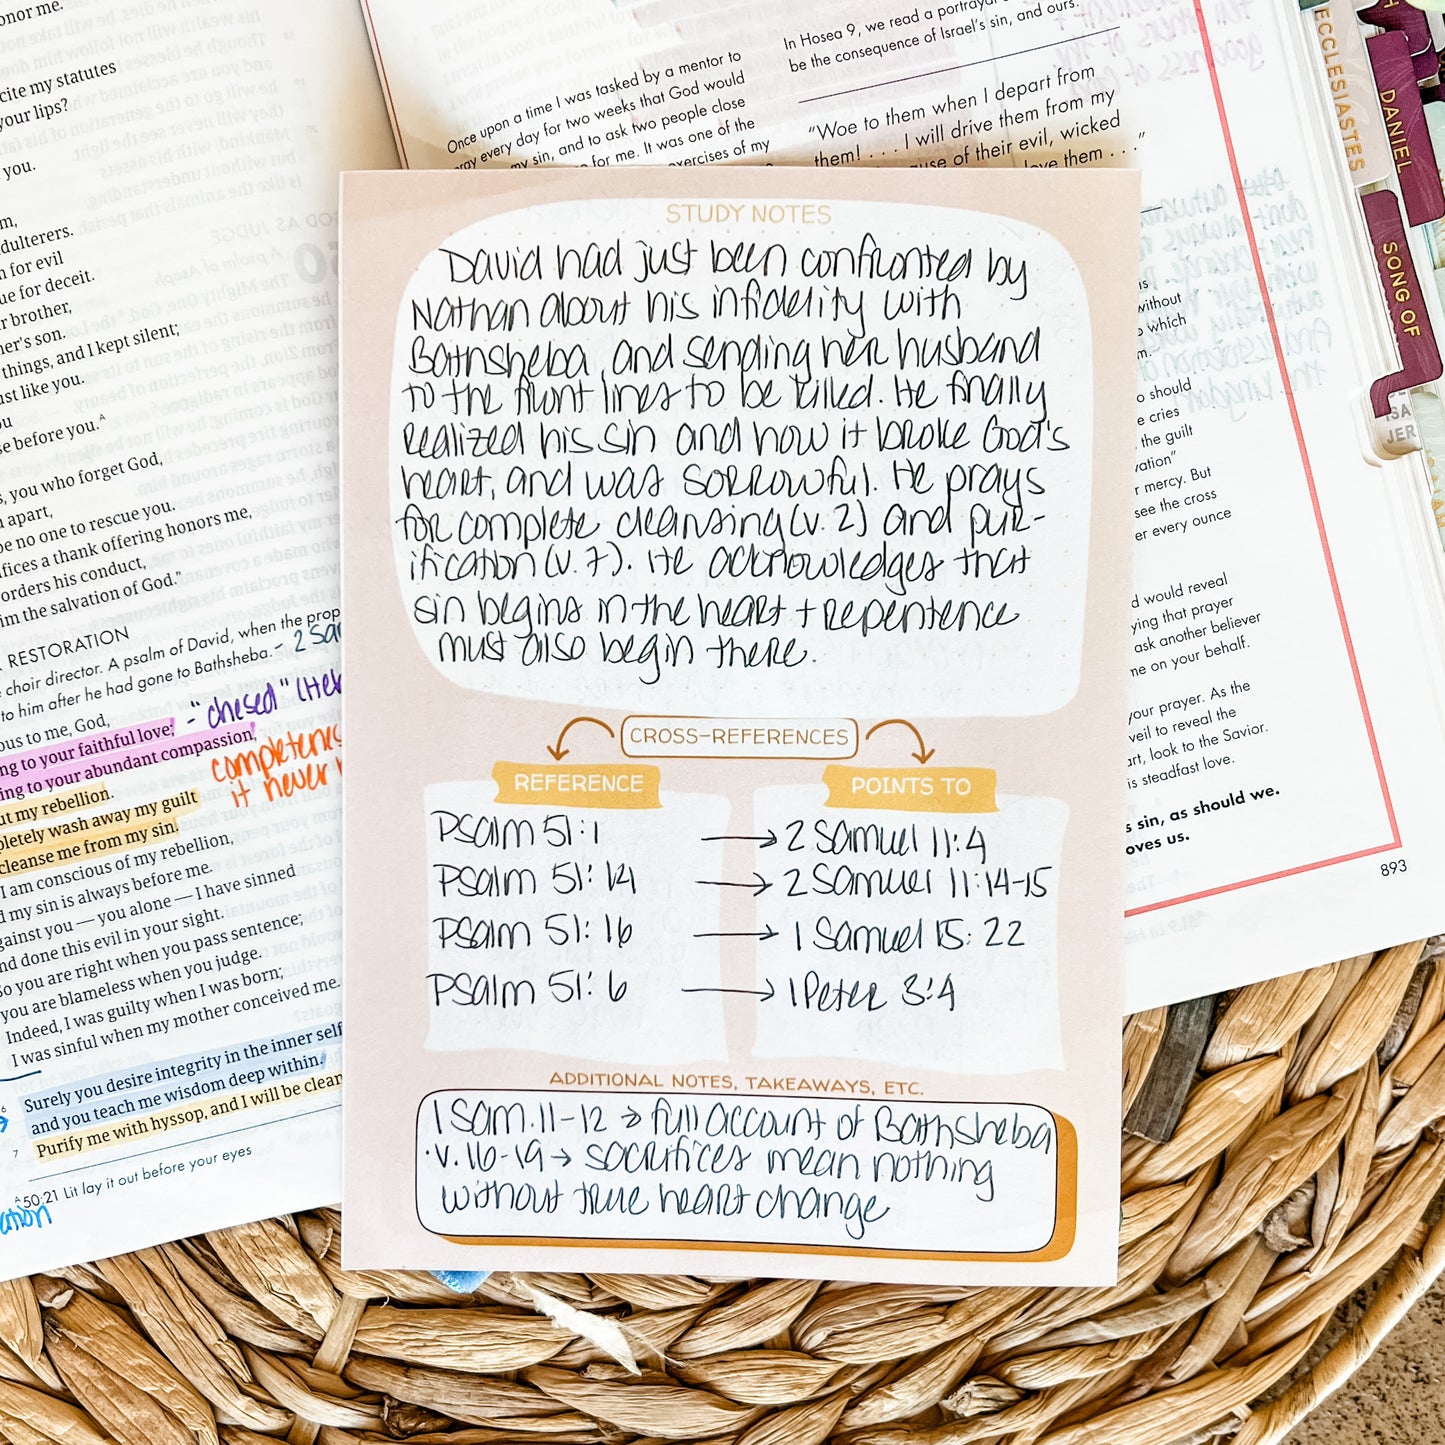 onor me.
cite my statutes
your lips?
you.
m,
dulterers.
n for evil
ue for deceit.
r brother,
her's son.
things, and I kept silent;
ust like you.
ou
se before you.ᴬ
s, you who forget God,
apart,
be no one to rescue you.
ifices a thank offering honors me,
orders his conduct,
im the salvation of God."
RESTORATION
choir director. A psalm of David, when the prop
to him after he had gone to Bathsheba. - 2 Sa
ous to me, God,
ng to your faithful love; - "chesed" (He
ing to your abundant compassion,
ut my rebellion.
completenes
it never
pletely wash away my guilt
cleanse me from my sin.
I am conscious of my rebellion,
d my sin is always before me.
gainst you — you alone — I have sinned
nd done this evil in your sight.
So you are right when you pass sentence;
you are blameless when you judge.
Indeed, I was guilty when I was born;
I was sinful when my mother conceived me.
6 Surely you desire integrity in the inner self
and you teach me wisdom deep within.
7 Purify me with hyssop, and I will be clean
ᴬ50:21 Lit lay it out before your eyes
ation
Once upon a time I was tasked by a mentor to
ray every day for two weeks that God would
my sin, and to ask two people close
for me. It was one of the
exercises of my
In Hosea 9, we read a portrayal
be the consequence of Israel's sin, and ours.
"Woe to them when I depart from
them! . . . I will drive them from my
use of their evil, wicked
love them . . ."
STUDY NOTES
David had just been confronted by
Nathan about his infidelity with
Bathsheba, and sending her husband
to the front lines to be killed. He finally
realized his sin and how it broke God's
heart, and was sorrowful. He prays
for complete cleansing (v. 2) and pur-
ification (v. 7). He acknowledges that
sin begins in the heart + repentence
must also begin there.
CROSS-REFERENCES
REFERENCE POINTS TO
Psalm 51:1 → 2 Samuel 11:4
Psalm 51:14 → 2 Samuel 11:14-15
Psalm 51:16 → 1 Samuel 15:22
Psalm 51:6 → 1 Peter 3:4
ADDITIONAL NOTES, TAKEAWAYS, ETC.
1 Sam. 11-12 → full account of Bathsheba
·v. 16-19 → sacrifices mean nothing
without true heart change
is
without
which
m.
o should
e cries
the guilt
vation"
r mercy. But
see the cross
er every ounce
d would reveal
ying that prayer
ask another believer
me on your behalf.
your prayer. As the
veil to reveal the
art, look to the Savior.
is steadfast love.
s sin, as should we.
oves us.
893
ECCLESIASTES
DANIEL
SONG OF
ISA
JER